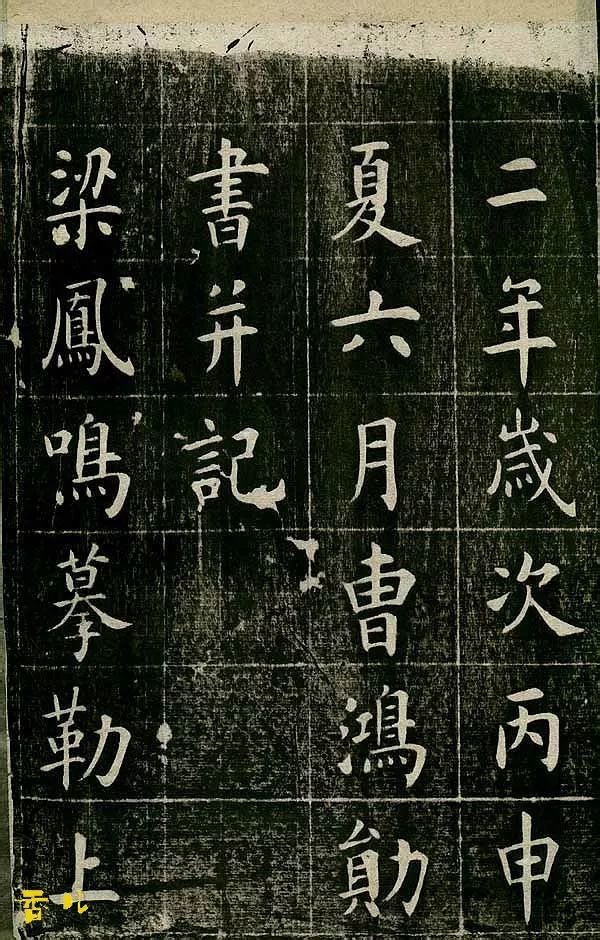 二年歲次丙申
夏六月曹鴻勛
書并記
梁鳳鳴摹勒上